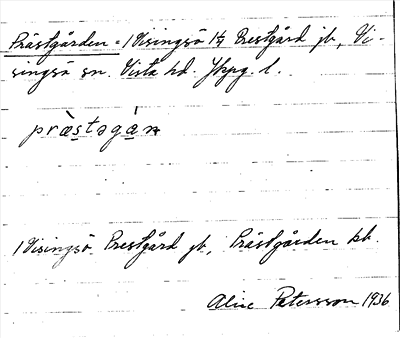 Prästgården = 1 Visingsö 1/4 Prestgård jb, Vi-
singsö sn. Vista hd. Jkpg. l.
præ̀stəgán
1 Visingsö Prestgård jb, Prästgården kb.
Alice Petersson 1936